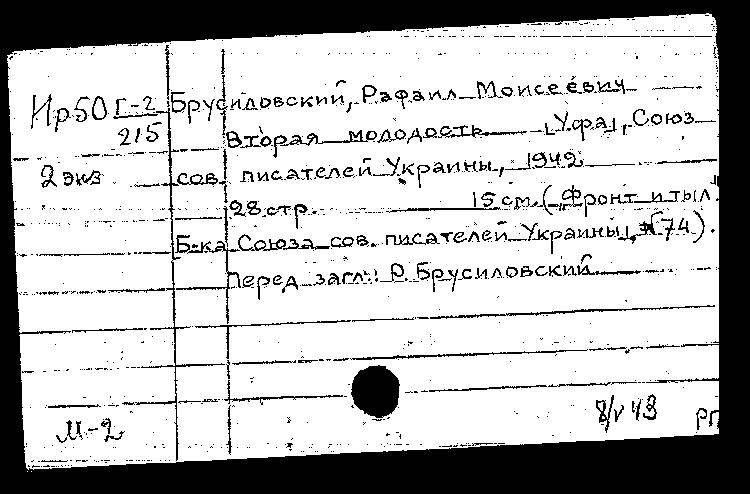 Ир50 Г-2 Брусиловский, Рафаил Моисеевич
215
Вторая молодость. [Уфа], Союз
2 экз сов. писателей Украины, 1942.
28 стр. 15 см. („Фронт и тыл".
[Б-ка Союза сов. писателей Украины], № 74).
Перед загл.: Р. Брусиловский
М-2
8/V 43 РП